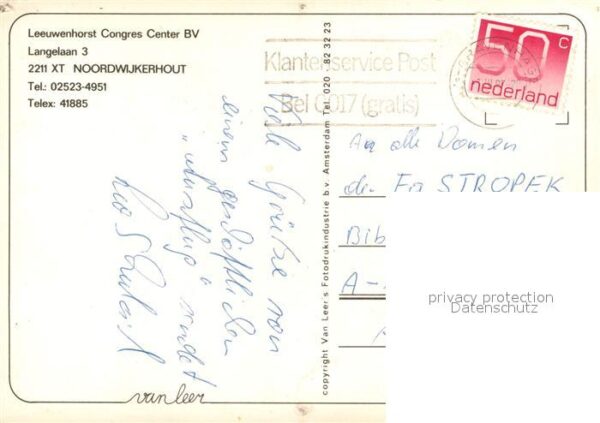 Leeuwenhorst Congres Center BV
Langelaan 3
2211 XT NOORDWIJKERHOUT
Tel.: 02523-4951
Telex: 41885
Klantenservice Post
Bel 0017 (gratis)
50 c
nederland
copyright Van Leer's Fotodrukindustrie b.v. Amsterdam Tel. 020 - 82 32 23
Viele Grüße von
einem geschäftlichen
"Ausflug" sendet
An alle Damen
der Fa STROPEK
Bib
A-
privacy protection
Datenschutz
van leer